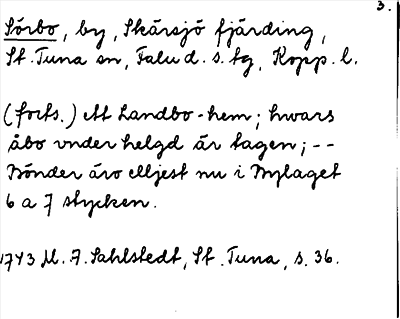 3.
Sörbo, by, Skärsjö fjärding,
St. Tuna sn, Falu d. s. tg, Kopp. l.
(forts.) ett Landbo-hem; hwars
åbo vnder helgd är tagen; --
Bönder äro elljest nu i Bylaget
6 a 7 stycken.
1743 M. A. Sahlstedt, St. Tuna, s. 36.